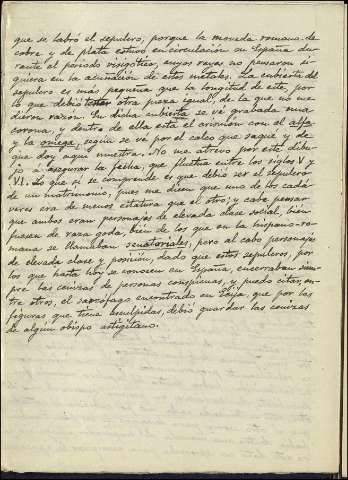 que se labró el sepulcro, porque la moneda romana de
cobre y de plata estuvo en circulación en España du-
rante el período visigótico, cuyos reyes no pensaron si-
quiera en la acuñación de estos metales. La cubierta del
sepulcro es más pequeña que la longitud de este, por
lo que debió tener otra pieza igual, de la que no me
dieron razon. En dicha cubierta se vé grabada una
corona, y dentro de ella está el crismón con el alfa
y la omega, según se vé por el calco que saqué y de
que doy aquí muestra. No me atrevo por este dibu-
jo á asegurar la fecha, que fluctua entre los siglos V y
VI. Lo que si se comprende es que debió ser el sepulcro
de un matrimonio, pues me dicen que uno de los cadá-
veres era de menos estatura que el otro; y cabe pensar
que ambos eran personajes de elevada clase social, bien
fuesen de raza goda, bien de los que en la hispano-ro-
mana se llamaban senatoriales, pero al cabo personajes
de elevada clase y posición, dado que estos sepulcros, por
los que hasta hoy se conocen en España, encerraban siem-
pre las cenizas de personas conspicuas, y puedo citar, en-
tre otros, el sarcofago encontrado en Ecija, que por las
figuras que tiene esculpidas, debió guardar las cenizas
de algún obispo astigitano.